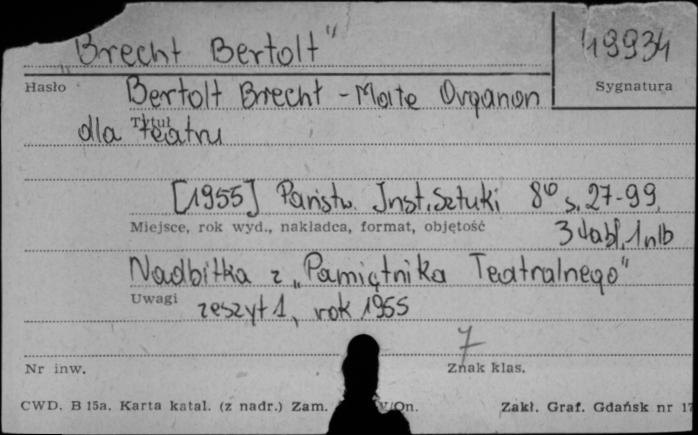 "Brecht Bertolt"
49934
Hasło
Sygnatura
Bertolt Brecht - Małe Organon
Tytuł
dla teatru
[1955] Państw. Inst. Sztuki 8° s. 27-99,
Miejsce, rok wyd., nakładca, format, objętość
3 tabl. 1 nlb
Nadbitka z "Pamiętnika Teatralnego"
Uwagi
zeszyt 1, rok 1955
7
Nr inw.
Znak klas.
CWD. B 15a. Karta katal. (z nadr.) Zam. V/On. Zakł. Graf. Gdańsk nr